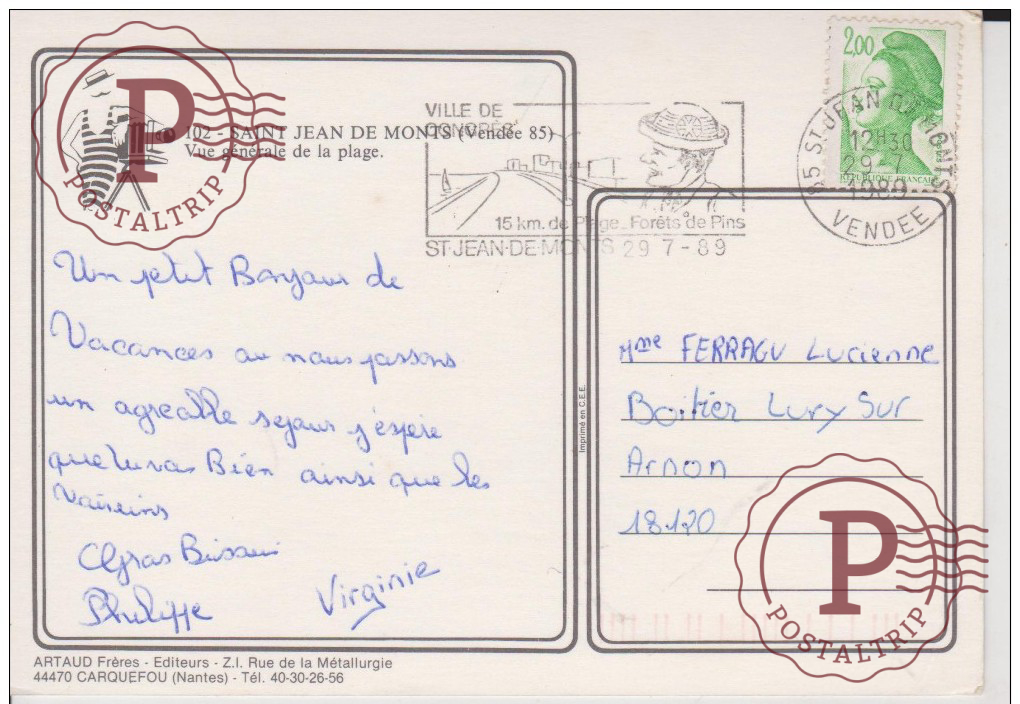 102 - SAINT JEAN DE MONTS (Vendée 85)
Vue générale de la plage.
VILLE DE
CONGRÈS
15 km. de Plage_Forêts de Pins
ST-JEAN-DE-MONTS 29 7 - 89
2,00
REPUBLIQUE FRANCAISE
85 ST JEAN DE MONTS
12H30
29 - 7
1989
VENDEE
Un petit Bonjour de
Vacances ou nous passons
un agreable sejour j'éspére
que tu vas Bien ainsi que les
Voisins
Gros Bisous
Philippe
Virginie
Imprimé en C.E.E.
Mme FERRAGU Lucienne
Boitier Lury Sur
Arnon
18120
ARTAUD Frères - Editeurs - Z.I. Rue de la Métallurgie
44470 CARQUEFOU (Nantes) - Tél. 40-30-26-56
P
POSTALTRIP
P
POSTALTRIP